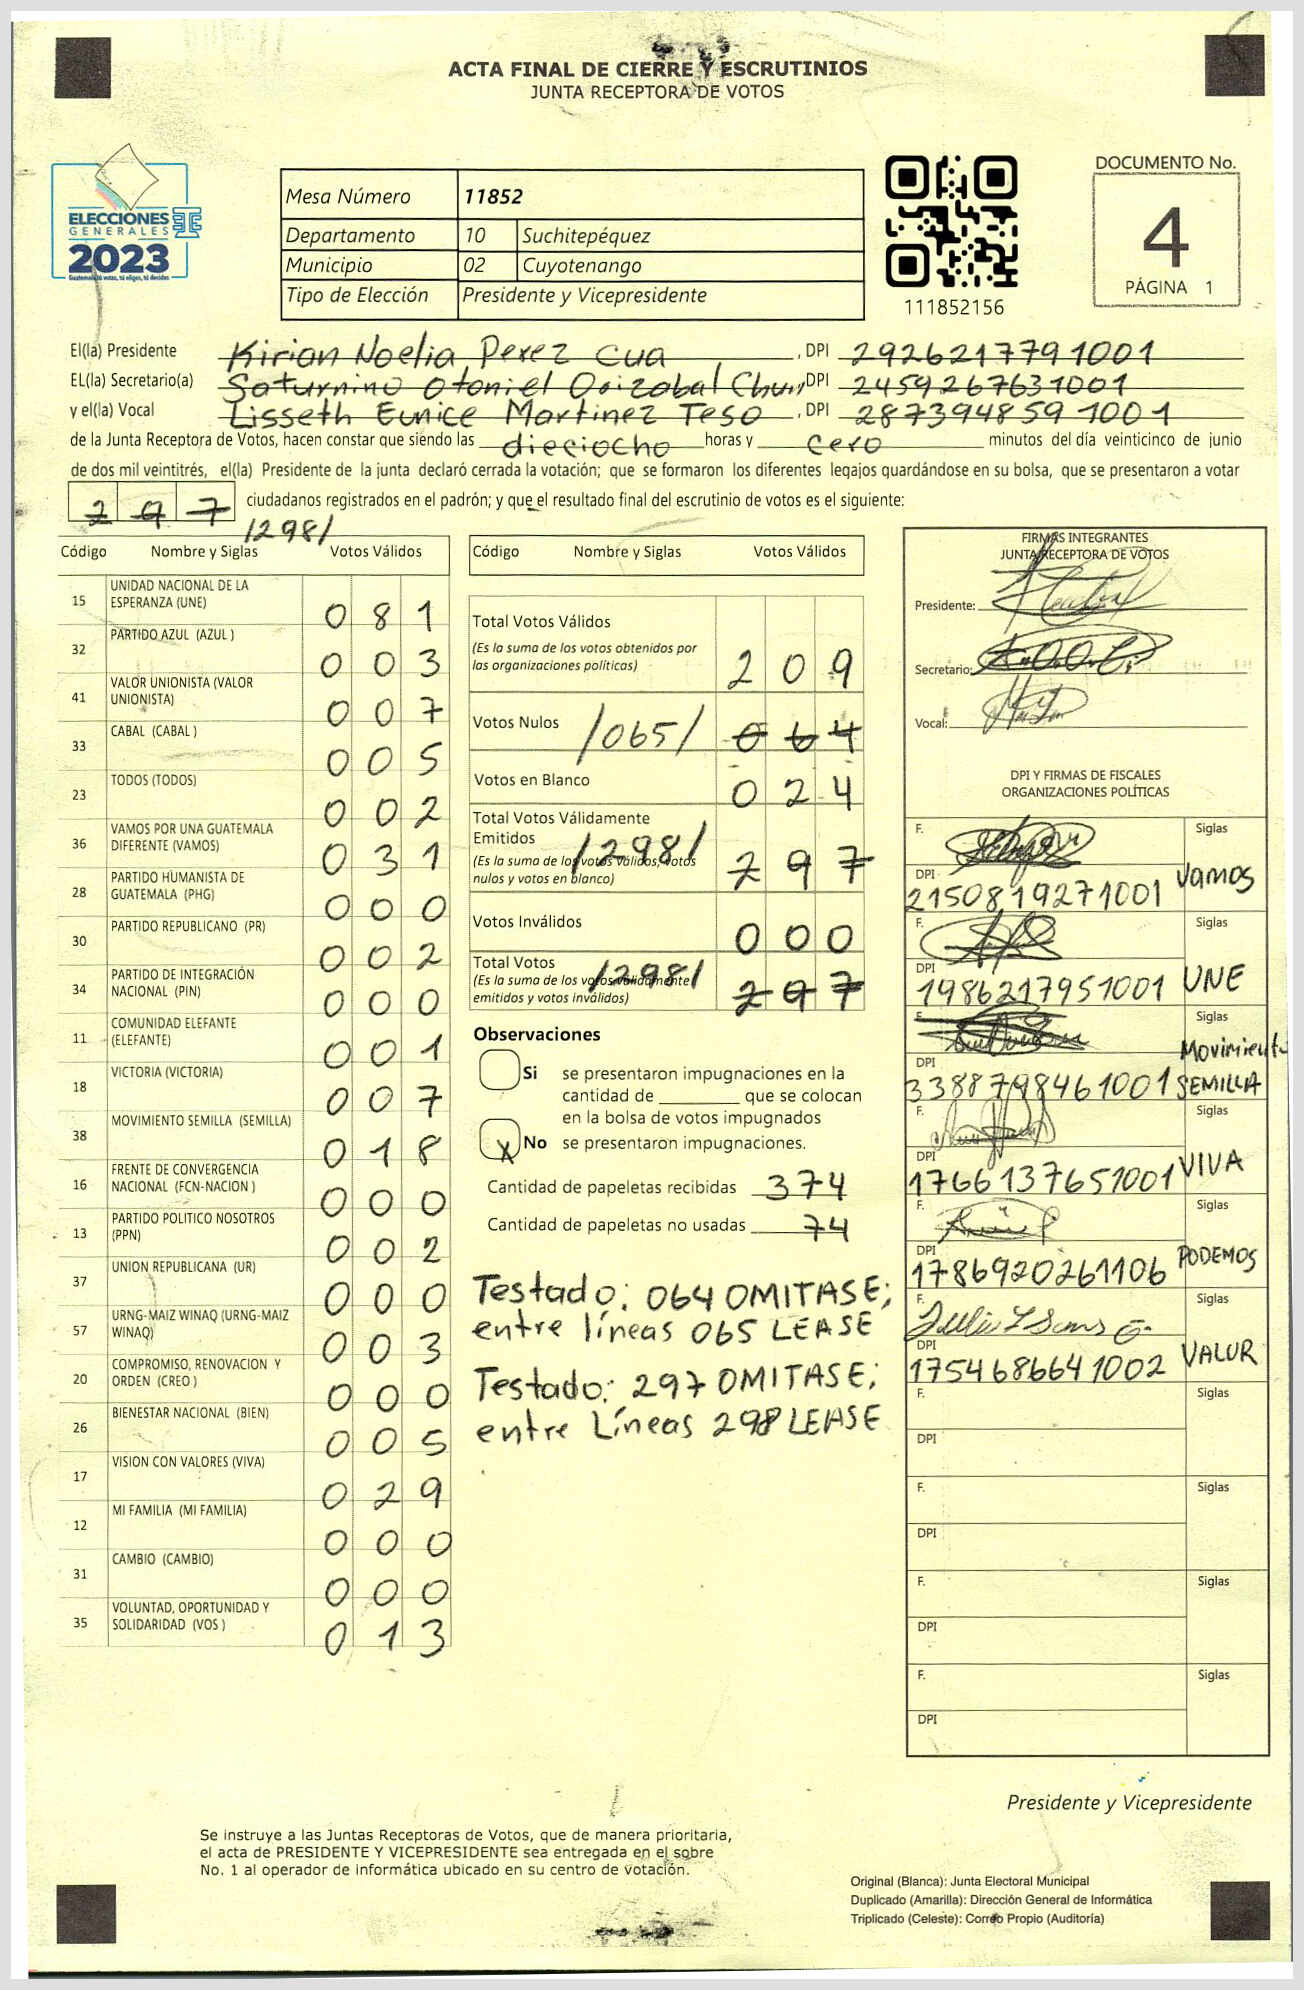 ACTA FINAL DE CIERRE Y ESCRUTINIOS
JUNTA RECEPTORA DE VOTOS
ELECCIONES
GENERALES
2023
Guatemala tú votas, tú eliges, tú decides
Mesa Número 11852
Departamento 10 Suchitepéquez
Municipio 02 Cuyotenango
Tipo de Elección Presidente y Vicepresidente
111852156
DOCUMENTO No.
4
PÁGINA 1
El(la) Presidente Kirian Noelia Perez Cua , DPI 2926217791001
EL(la) Secretario(a) Saturnino Otoniel Orizabal Chun DPI 2459267631001
y el(la) Vocal Lisseth Eunice Martinez Teso , DPI 2873948591001
de la Junta Receptora de Votos, hacen constar que siendo las dieciocho horas y cero minutos del día veinticinco de junio
de dos mil veintitrés, el(la) Presidente de la junta declaró cerrada la votación; que se formaron los diferentes legajos quardándose en su bolsa, que se presentaron a votar
297 ciudadanos registrados en el padrón; y que el resultado final del escrutinio de votos es el siguiente:
/298/
Código Nombre y Siglas Votos Válidos
15 UNIDAD NACIONAL DE LA
ESPERANZA (UNE) 081
32 PARTIDO AZUL (AZUL ) 003
41 VALOR UNIONISTA (VALOR
UNIONISTA) 007
33 CABAL (CABAL ) 005
23 TODOS (TODOS) 002
36 VAMOS POR UNA GUATEMALA
DIFERENTE (VAMOS) 031
28 PARTIDO HUMANISTA DE
GUATEMALA (PHG) 000
30 PARTIDO REPUBLICANO (PR) 002
34 PARTIDO DE INTEGRACIÓN
NACIONAL (PIN) 000
11 COMUNIDAD ELEFANTE
(ELEFANTE) 001
18 VICTORIA (VICTORIA) 007
38 MOVIMIENTO SEMILLA (SEMILLA) 018
16 FRENTE DE CONVERGENCIA
NACIONAL (FCN-NACION ) 000
13 PARTIDO POLITICO NOSOTROS
(PPN) 002
37 UNION REPUBLICANA (UR) 000
57 URNG-MAIZ WINAQ (URNG-MAIZ
WINAQ) 003
20 COMPROMISO, RENOVACION Y
ORDEN (CREO ) 000
26 BIENESTAR NACIONAL (BIEN) 005
17 VISION CON VALORES (VIVA) 029
12 MI FAMILIA (MI FAMILIA) 000
31 CAMBIO (CAMBIO) 000
35 VOLUNTAD, OPORTUNIDAD Y
SOLIDARIDAD (VOS ) 013
Código Nombre y Siglas Votos Válidos
Total Votos Válidos
(Es la suma de los votos obtenidos por
las organizaciones políticas) 209
Votos Nulos /065/ 064
Votos en Blanco 024
Total Votos Válidamente
Emitidos /298/
(Es la suma de los votos válidos, votos
nulos y votos en blanco) 297
Votos Inválidos 000
Total Votos /298/
(Es la suma de los votos válidamente
emitidos y votos inválidos) 297
Observaciones
Si se presentaron impugnaciones en la
cantidad de ________ que se colocan
en la bolsa de votos impugnados
X No se presentaron impugnaciones.
Cantidad de papeletas recibidas 374
Cantidad de papeletas no usadas 74
Testado: 064 OMITASE;
entre líneas 065 LEASE
Testado: 297 OMITASE;
entre Líneas 298 LEASE
FIRMAS INTEGRANTES
JUNTA RECEPTORA DE VOTOS
Presidente:
Secretario:
Vocal:
DPI Y FIRMAS DE FISCALES
ORGANIZACIONES POLÍTICAS
F. Siglas
DPI 2150819271001 Vamos
F. Siglas
DPI 1986217951001 UNE
F. Siglas
Movimiento
DPI 3388798461001 SEMILLA
F. Siglas
DPI 1766137651001 VIVA
F. Siglas
DPI 1786920261106 PODEMOS
F. Siglas
DPI 1754686641002 VALUR
F. Siglas
DPI
F. Siglas
DPI
F. Siglas
DPI
F. Siglas
DPI
Presidente y Vicepresidente
Se instruye a las Juntas Receptoras de Votos, que de manera prioritaria,
el acta de PRESIDENTE Y VICEPRESIDENTE sea entregada en el sobre
No. 1 al operador de informática ubicado en su centro de votación.
Original (Blanca): Junta Electoral Municipal
Duplicado (Amarilla): Dirección General de Informática
Triplicado (Celeste): Correo Propio (Auditoría)